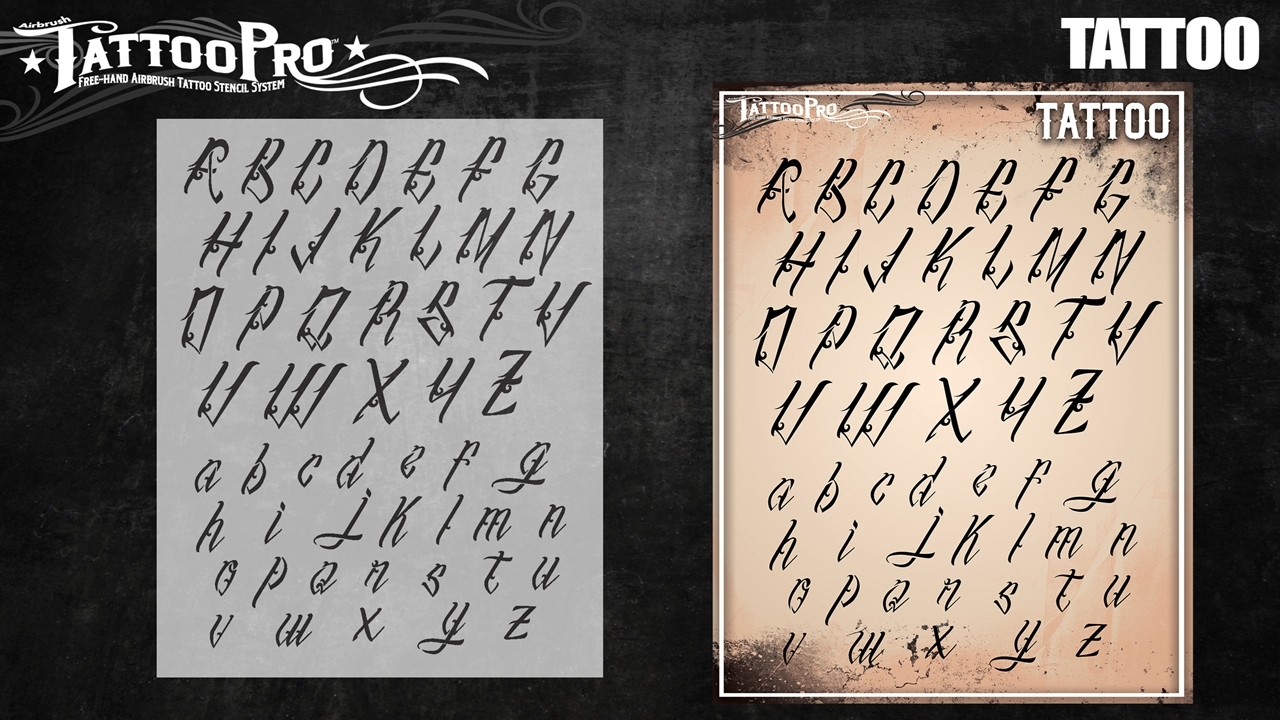 Airbrush
TATTOOPRO™
FREE-HAND AIRBRUSH TATTOO STENCIL SYSTEM
TATTOO
A B C D E F G
H I J K L M N
O P Q R S T V
U W X Y Z
a b c d e f g
h i j k l m n
o p q r s t u
v w x y z
TATTOOPRO
TATTOO
A B C D E F G
H I J K L M N
O P Q R S T V
U W X Y Z
a b c d e f g
h i j k l m n
o p q r s t u
v w x y z